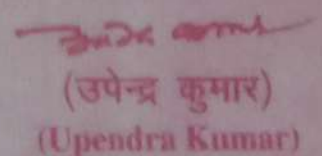 (उपेन्द्र कुमार)
(Upendra Kumar)